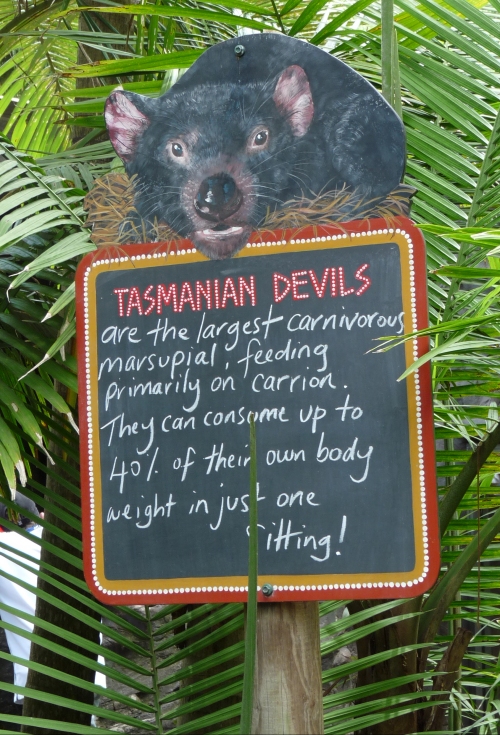 TASMANIAN DEVILS
are the largest carnivorous
marsupial, feeding
primarily on carrion.
They can consume up to
40% of their own body
weight in just one
sitting!